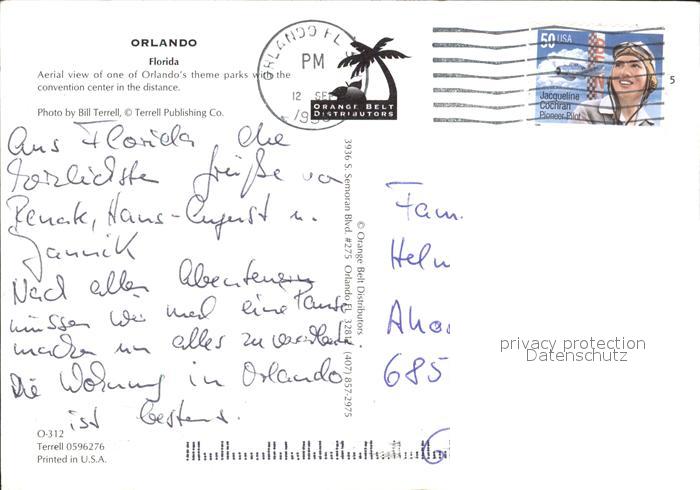 ORLANDO
Florida
Aerial view of one of Orlando's theme parks with the
convention center in the distance.
Photo by Bill Terrell, © Terrell Publishing Co.
ORLANDO FL
PM
12 SEP
ORANGE BELT
DISTRIBUTORS
50 USA
Jacqueline
Cochran
Pioneer Pilot
5
Aus Florida die
herzlichsten Grüße von
Renate, Hans-August u.
Jannik
Nach allen Abenteuern
müssen wir mal eine Pause
machen um alles zu verarbeiten.
Die Wohnung in Orlando
ist bestens.
© Orange Belt Distributors
3936 S. Semoran Blvd. #275 Orlando FL 32822 (407) 857-2975
Fam.
Helm
Ahor
685
6
privacy protection
Datenschutz
O-312
Terrell 0596276
Printed in U.S.A.